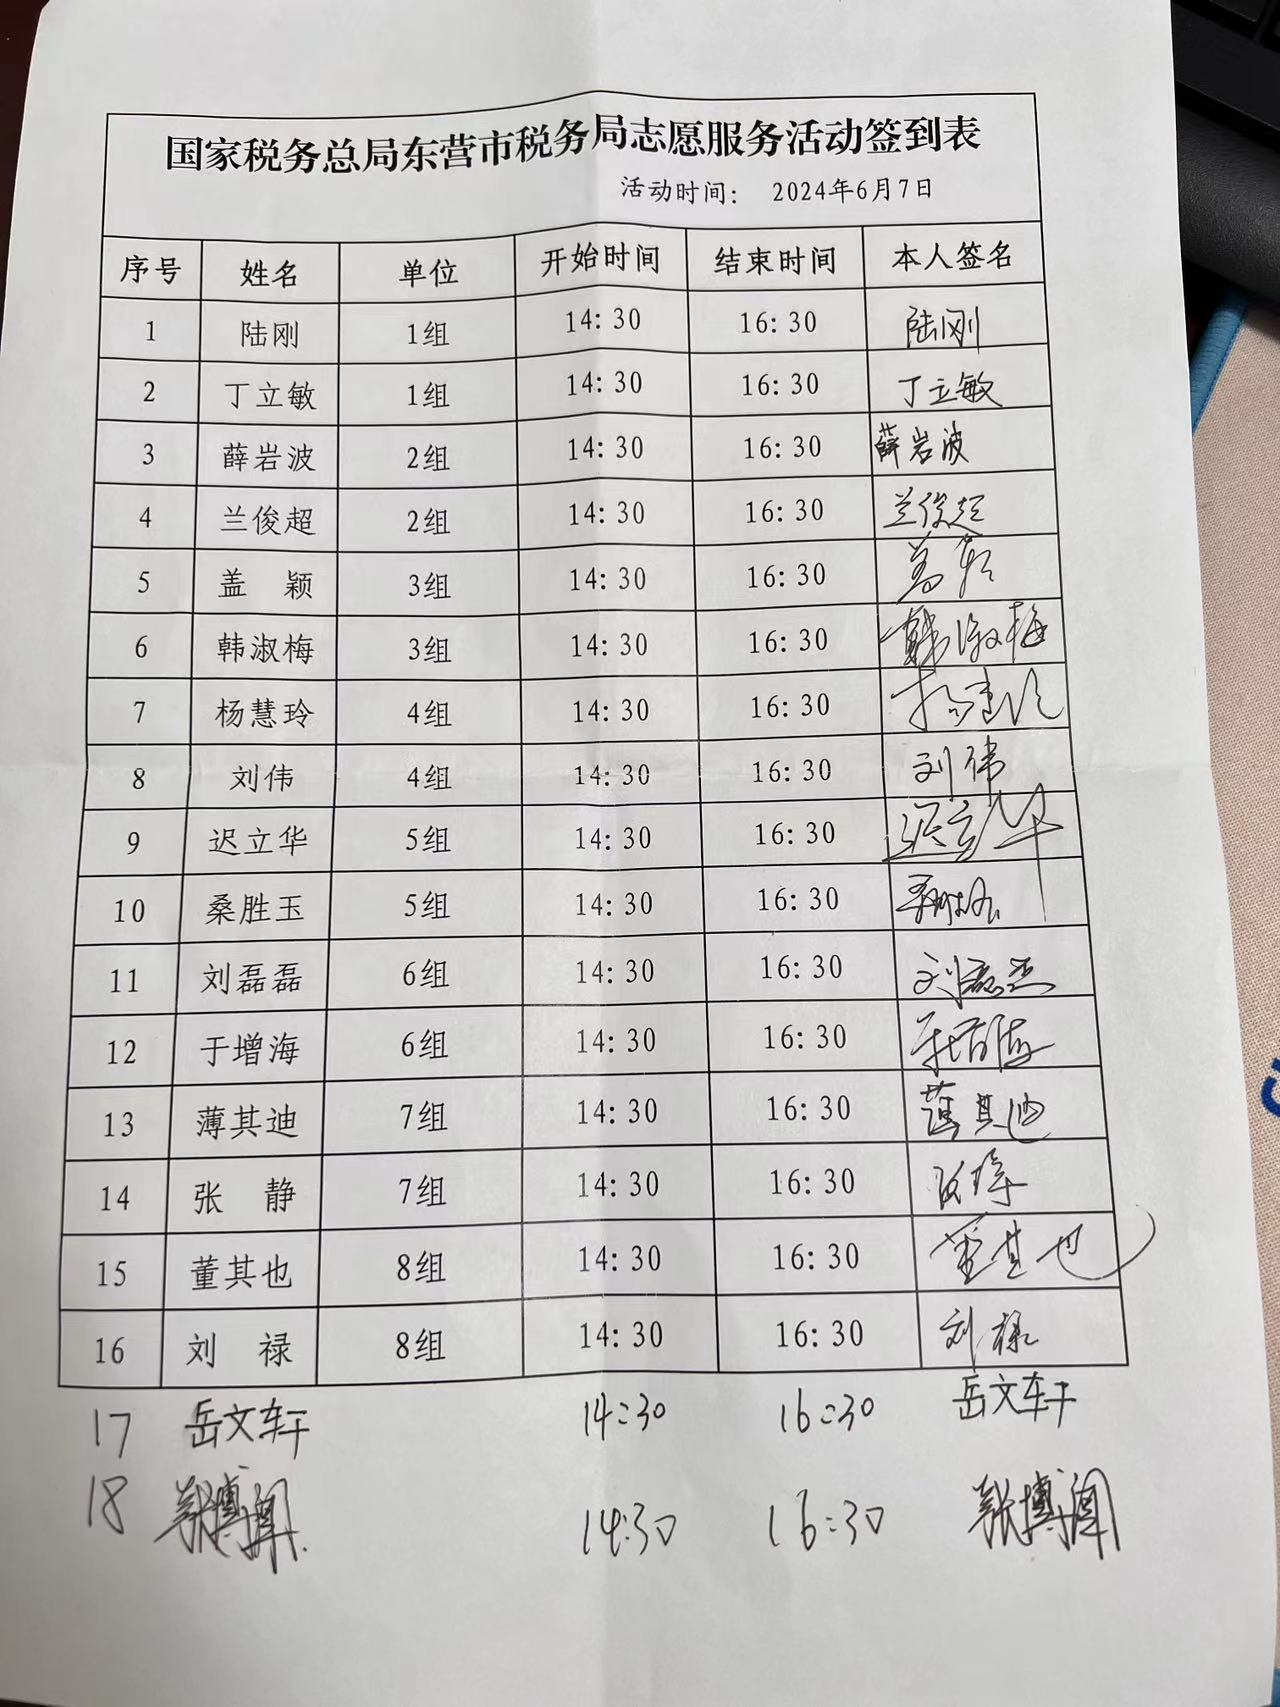 国家税务总局东营市税务局志愿服务活动签到表
活动时间： 2024年6月7日
序号 姓名 单位 开始时间 结束时间 本人签名
1 陆刚 1组 14：30 16：30 陆刚
2 丁立敏 1组 14：30 16：30 丁立敏
3 薛岩波 2组 14：30 16：30 薛岩波
4 兰俊超 2组 14：30 16：30 兰俊超
5 盖 颖 3组 14：30 16：30 盖颖
6 韩淑梅 3组 14：30 16：30 韩淑梅
7 杨慧玲 4组 14：30 16：30 杨慧玲
8 刘伟 4组 14：30 16：30 刘伟
9 迟立华 5组 14：30 16：30 迟立华
10 桑胜玉 5组 14：30 16：30
11 刘磊磊 6组 14：30 16：30 刘磊磊
12 于增海 6组 14：30 16：30 于增海
13 薄其迪 7组 14：30 16：30 薄其迪
14 张 静 7组 14：30 16：30 张静
15 董其也 8组 14：30 16：30 董其也
16 刘 禄 8组 14：30 16：30 刘禄
17 岳文轩 14:30 16:30 岳文轩
18 张博闻 14:30 16:30 张博闻